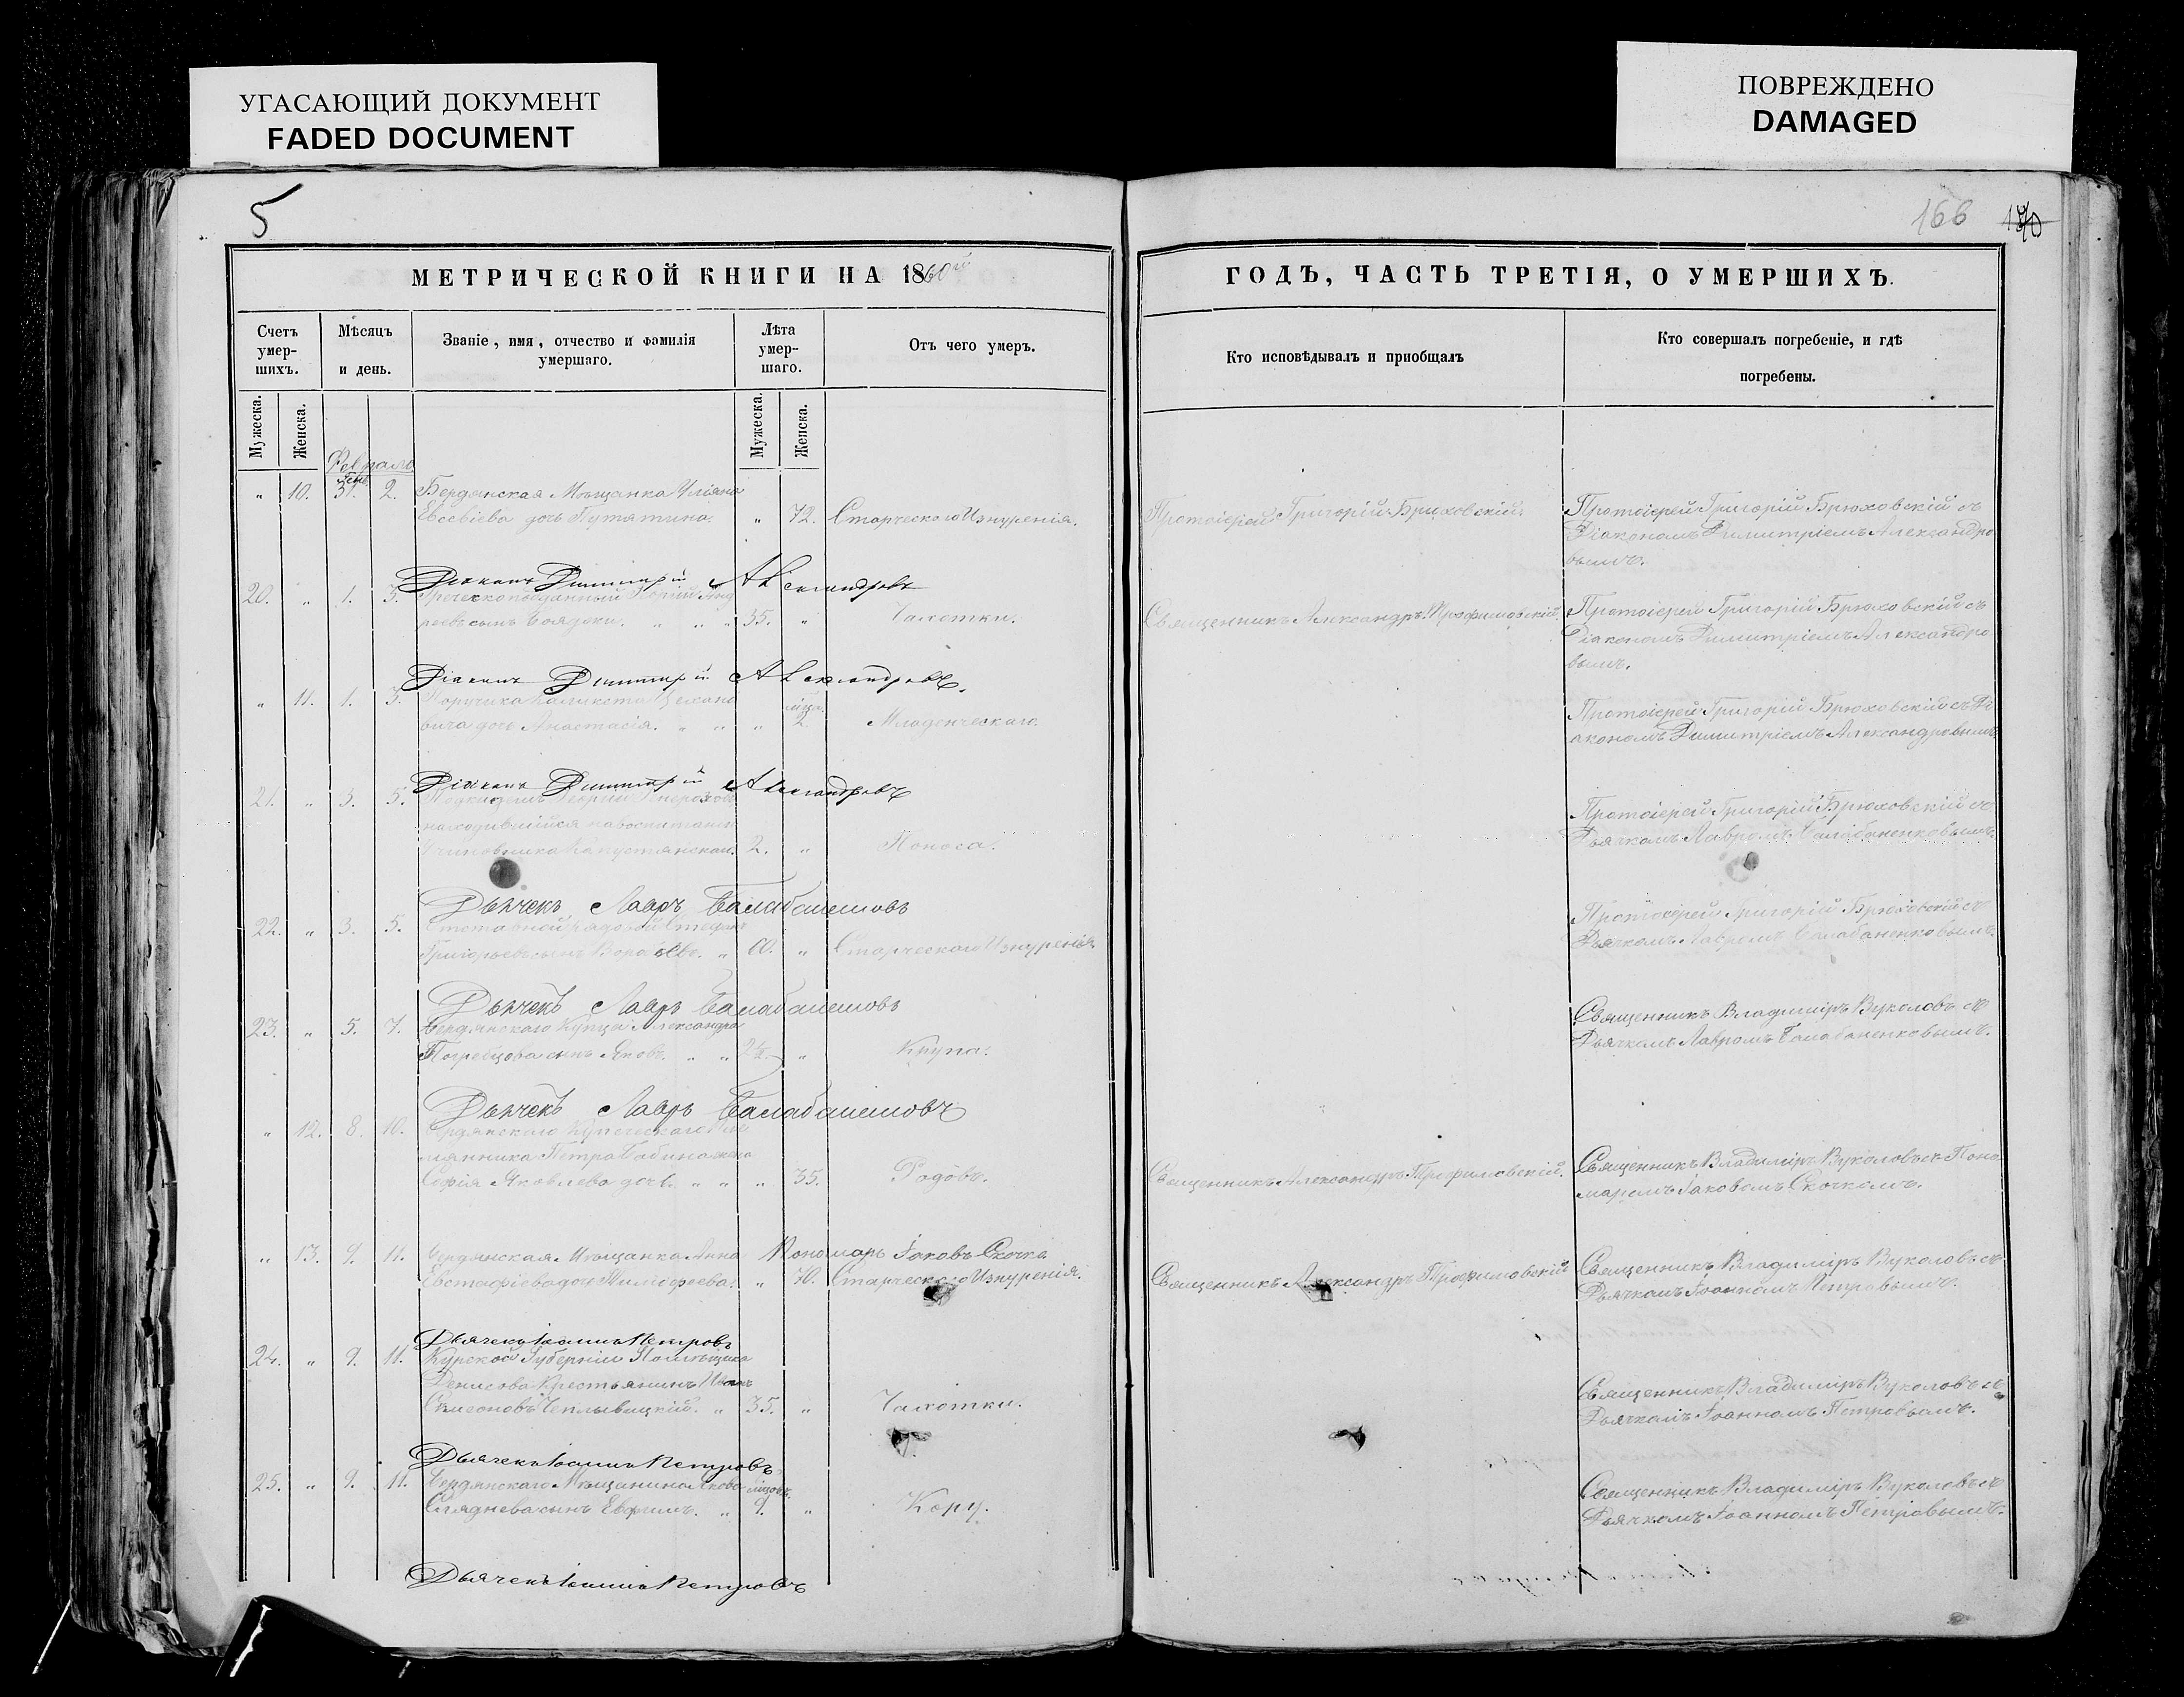 УГАСАЮЩИЙ ДОКУМЕНТ
FADED DOCUMENT
ПОВРЕЖДЕНО
DAMAGED
5
166 170
МЕТРИЧЕСКОЙ КНИГИ НА 1860й
ГОДЪ, ЧАСТЬ ТРЕТІЯ, О УМЕРШИХЪ.
Счетъ умер-шихъ.
Мѣсяцъ и день.
Званіе, имя, отчество и фамилія умершаго.
Лѣта умер-шаго.
Отъ чего умеръ.
Кто исповѣдывалъ и приобщалъ
Кто совершалъ погребеніе, и гдѣ погребены.
Мужеска.
Женска.
Мужеска.
Женска.
Февраль
„ 10. 31. 2. Бердянская Мѣщанка Уліяна
Евсевіева дочь Путятина. „ 72. Старческого Изнуренія.
Протоіерей Григорій Брюховскій.
Протоіерей Григорій Брюховскій съ
Діакономъ Димитріемъ Александро
вымъ.
Діаконъ Димитрій Александровъ
20. „ 1. 3. Греческоподданный
сынъ „ „ „ 35. „ Чахотки.
Священникъ Александръ Трофимовскій.
Протоіерей Григорій Брюховскій съ
Діакономъ Димитріемъ Александро
вымъ.
Діаконъ Димитрій Александровъ.
„ 11. 1. 3. Поручика
вича дочь Анастасія. „ „ „ 2. Младенческаго.
Протоіерей Григорій Брюховскій съ Ді
акономъ Димитріемъ Александровымъ.
Діаконъ Димитрій Александровъ
21. „ 3. 5. Подкидышъ Георгій
находившійся на воспитаніи
Чиновника 2. „ Поноса.
Протоіерей Григорій Брюховскій съ
Дьячкомъ Лавромъ Балабаненковымъ.
Дьячекъ Лавръ
22. „ 3. 5. Отставной рядовой Стефанъ
Григорьевъ сынъ „ 60. „ Старческого Изнуренія
Протоіерей Григорій Брюховскій съ
Дьячкомъ Лавромъ Балабаненковымъ.
Дьячекъ Лавръ
23. „ 5. 7. Бердянскаго Купца Александра
Погребцова сынъ Яковъ. „ „ „ Крупа.
Священникъ Владиміръ Вуколовъ съ
Дьячкомъ Лавромъ Балабаненковымъ.
Дьячекъ Лавръ
„ 12. 8. 10. Бердянскаго Купеческаго Пле
мянника Петра Бабина жена
Софія Яковлева дочь. „ „ „ 35. Родовъ.
Священникъ Александръ Трофимовскій.
Священникъ Владиміръ Вуколовъ съ Поно
маремъ Іаковомъ Скочкомъ.
Пономарь Іаковъ Скочко
„ 13. 9. 11. Бердянская Мѣщанка Анна
Евстафіева дочь Тимофеева. „ 70. Старческого Изнуренія.
Священникъ Александръ Трофимовскій
Священникъ Владиміръ Вуколовъ съ
Дьячкомъ Іоанномъ Петровымъ.
Дьячекъ Іоаннъ Петровъ
24. „ 9. 11. Курской Губерніи Помѣщика
Денисова Крестьянинъ Иванъ
Симеоновъ „ 35. „ Чахотки.
Священникъ Владиміръ Вуколовъ съ
Дьячкомъ Іоанномъ Петровымъ.
Дьячекъ Іоаннъ Петровъ
25. „ 9. 11. Бердянскаго Мѣщанина Якова
сынъ Евфимъ. „ 9. „ Кору.
Священникъ Владиміръ Вуколовъ съ
Дьячкомъ Іоанномъ Петровымъ.
Дьячекъ Іоаннъ Петровъ